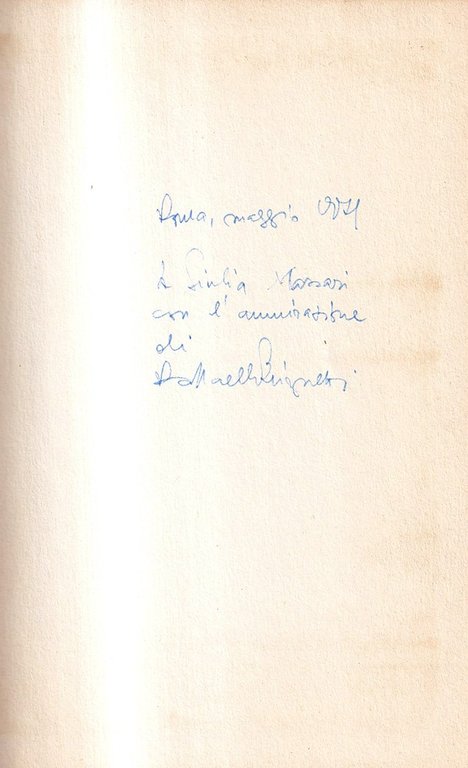 Roma, maggio 1971
A Giulia Massari
con l'ammirazione
di
Raffaello Brignetti